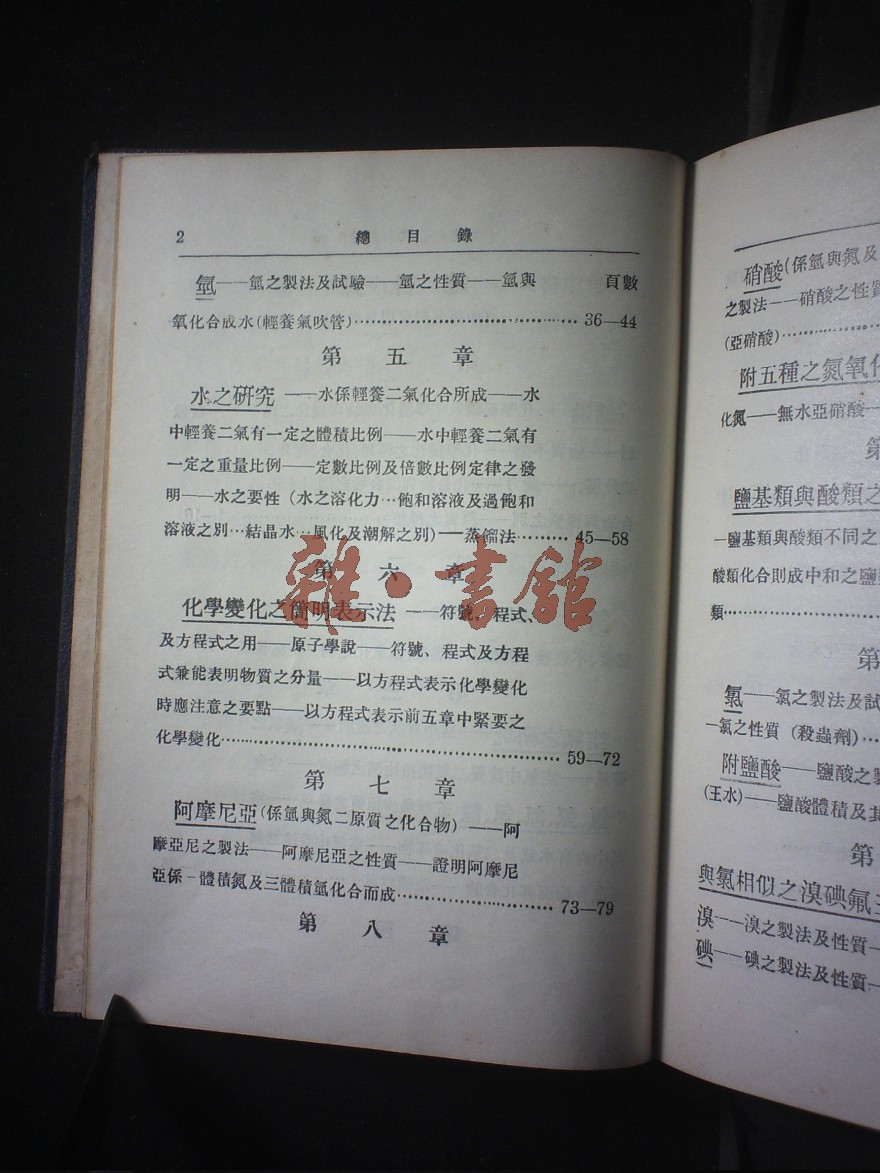 2 總目錄
氫——氫之製法及試驗——氫之性質——氫與 頁數
氧化合成水(輕養氣吹管)…………………………… 36—44
第五章
水之研究——水係輕養二氣化合所成——水
中輕養二氣有一定之體積比例——水中輕養二氣有
一定之重量比例——定數比例及倍數比例定律之發
明——水之要性 (水之溶化力…飽和溶液及過飽和
溶液之別…結晶水…風化及潮解之別)—蒸餾法……… 45—58
第六章
化學變化之簡明表示法——符號、程式、
及方程式之用——原子學說——符號、程式及方程
式兼能表明物質之分量——以方程式表示化學變化
時應注意之要點——以方程式表示前五章中緊要之
化學變化…………………………………………… 59—72
第七章
阿摩尼亞(係氫與氮二原質之化合物)——阿
摩亞尼之製法——阿摩尼亞之性質——證明阿摩尼
亞係-體積氮及三體積氫化合而成…………………… 73—79
第八章
硝酸(係氫與氮及
之製法——硝酸之性質
(亞硝酸)………………
附五種之氮氧化
化氮——無水亞硝酸——
第
鹽基類與酸類之
—鹽基類與酸類不同之
酸類化合則成中和之鹽
類…………………
第
氯——氯之製法及試
—氯之性質 (殺蟲劑)…
附鹽酸——鹽酸之製
(王水)——鹽酸體積及其
第
與氯相似之溴碘氟
溴——溴之製法及性質—
碘——碘之製法及性質—
雜·書館